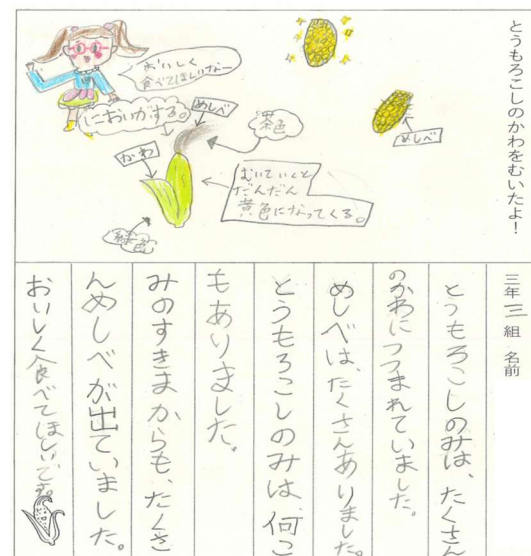 とうもろこしのかわをむいたよ！
三年 三 組 名前
おいしく
食べてほしいなー
においがする。
めしべ
茶色
かわ
むいていくと
だんだん
黄色になってくる。
緑色
めしべ
とうもろこしのみは、たくさん
のかわにつつまれていました。
めしべは、たくさんありました。
とうもろこしのみは、何こ
もありました。
みのすきまからも、たくさ
んめしべが出ていました。
おいしく食べてほしいです。